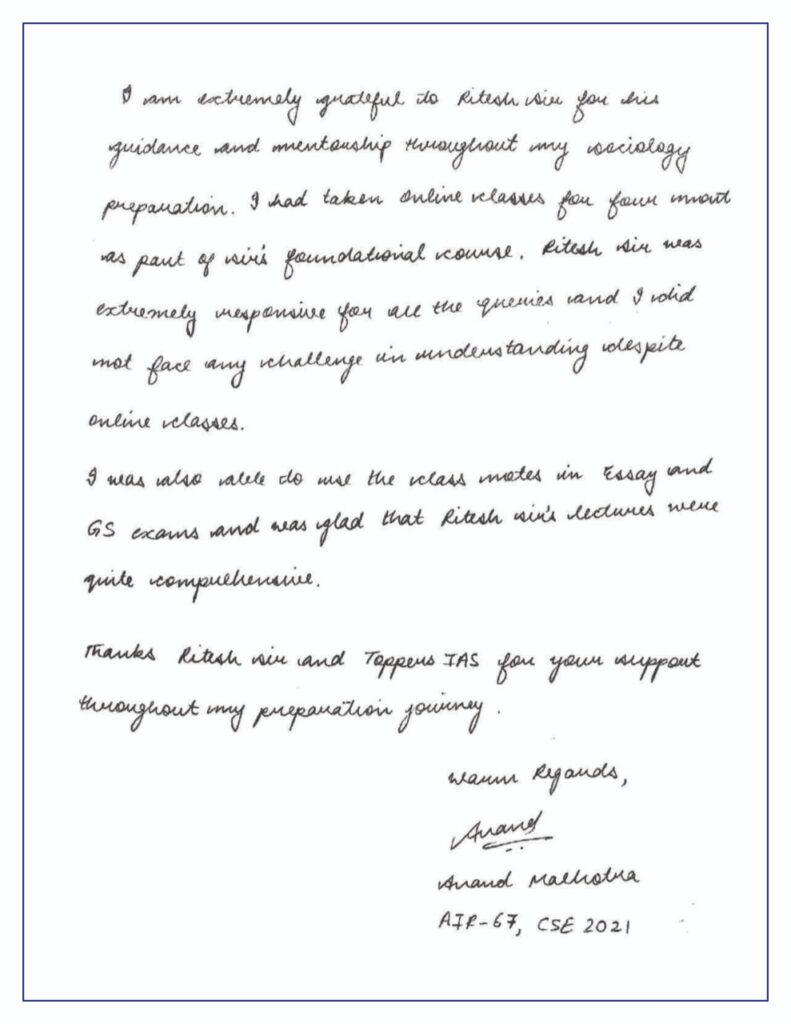 I am extremely grateful to Ritesh sir for his
guidance and mentorship throughout my sociology
preparation. I had taken online classes for four
as part of sir's foundational course. Ritesh sir was
extremely responsive for all the queries and I did
not face any challenge in understanding despite
online classes.
I was also able to use the class notes in Essay and
GS exams and was glad that Ritesh sir's lectures were
quite comprehensive.
Thanks Ritesh sir and Toppers IAS for your support
throughout my preparation journey.
Warm Regards,
Anand
Anand Malhotra
AIR-67, CSE 2021